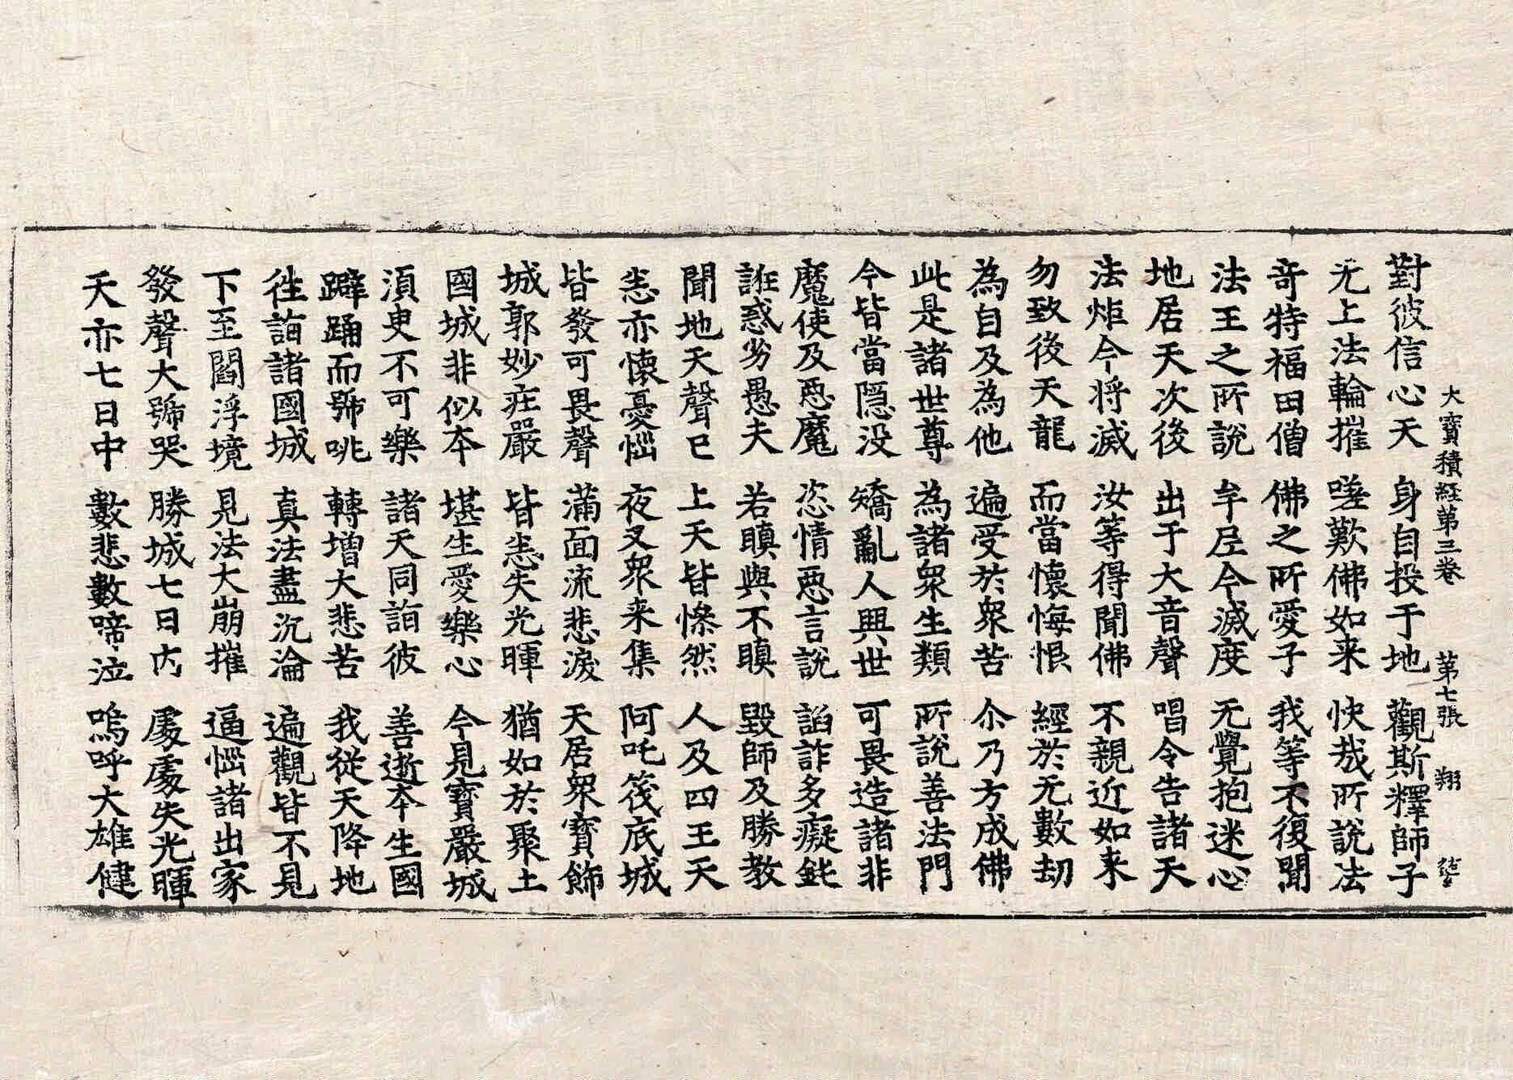 大寶積經第三卷 第七張 翔
對彼信心天 身自投于地 觀斯釋師子
无上法輪摧 嗟歎佛如来 快哉所說法
奇特福田僧 佛之所愛子 我等不復聞
法王之所說 牟尼今滅度 无覺抱迷心
地居天次後 出于大音聲 唱令告諸天
法炬今将滅 汝等得聞佛 不親近如来
勿致後天龍 而當懷悔恨 經於无數劫
為自及為他 遍受於衆苦 尒乃方成佛
此是諸世尊 為諸衆生類 所說善法門
今皆當隠没 矯亂人興世 可畏造諸非
魔使及惡魔 恣情惡言說 諂詐多癡鈍
誑惑劣愚夫 若瞋與不瞋 毀師及勝教
聞地天聲已 上天皆慘然 人及四王天
恚亦懷憂惱 夜叉衆来集 阿吒筏底城
皆發可畏聲 滿面流悲淚 天居衆寶飾
城郭妙莊嚴 皆恚失光暉 猶如於聚土
國城非似本 堪生愛樂心 今見寶嚴城
湏臾不可樂 諸天同詣彼 善逝本生國
躃踊而號咷 轉增大悲苦 我従天降地
往詣諸國城 真法盡沉淪 遍觀皆不見
下至閻浮境 見法大崩摧 逼惱諸出家
發聲大號哭 勝城七日内 處處失光暉
天亦七日中 數悲數啼泣 嗚呼大雄健